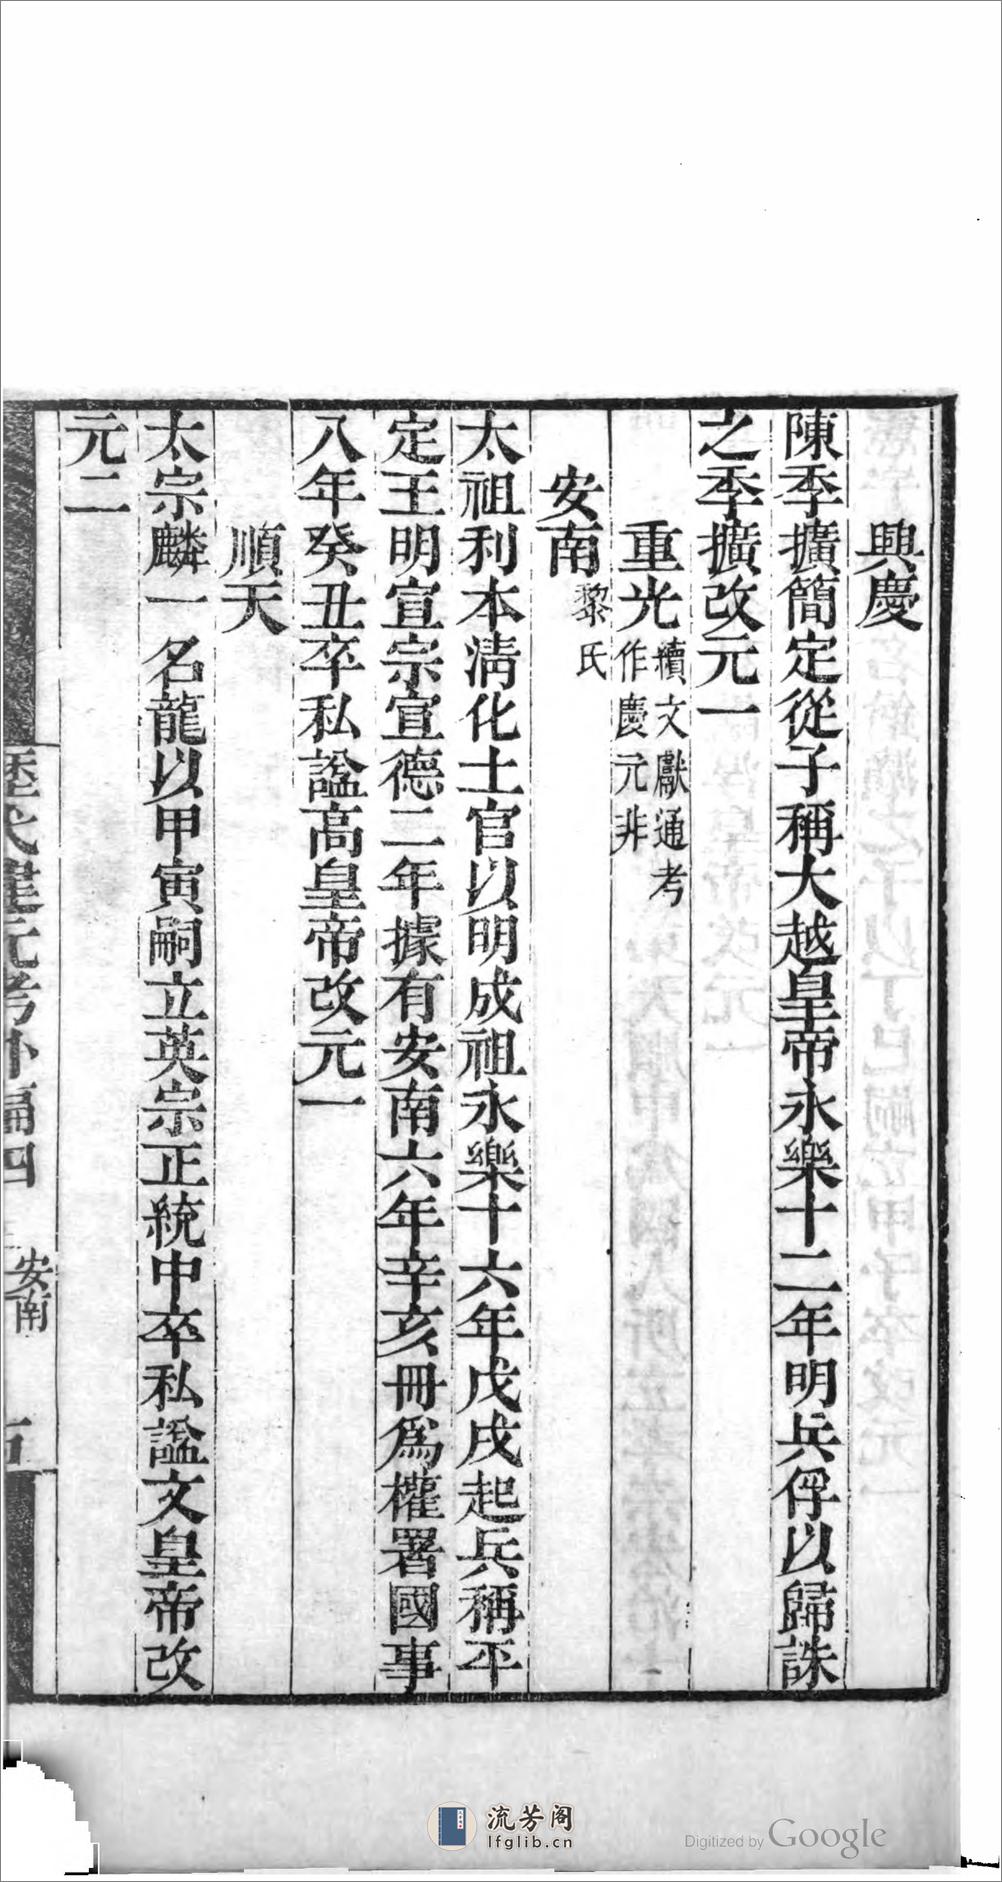 興慶
陳季擴簡定從子稱大越皇帝永樂十二年明兵俘以歸誅
之季擴改元一
重光續文獻通考作慶元非
安南黎氏
太祖利本淸化土官以明成祖永樂十六年戊戌起兵稱平
定王明宣宗宣德二年據有安南六年辛亥冊爲權署國事
八年癸丑卒私謚高皇帝改元一
順天
太宗麟一名龍以甲寅嗣立英宗正統中卒私謚文皇帝改
元二
歷代建元考外編四 安南 五
流芳阁
lfglib.cn
Digitized by Google